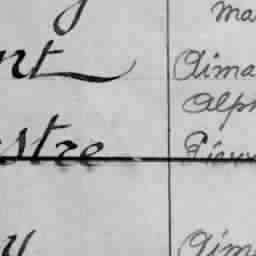 ma
nt Aima
Alph
stre Pierr
y Aim